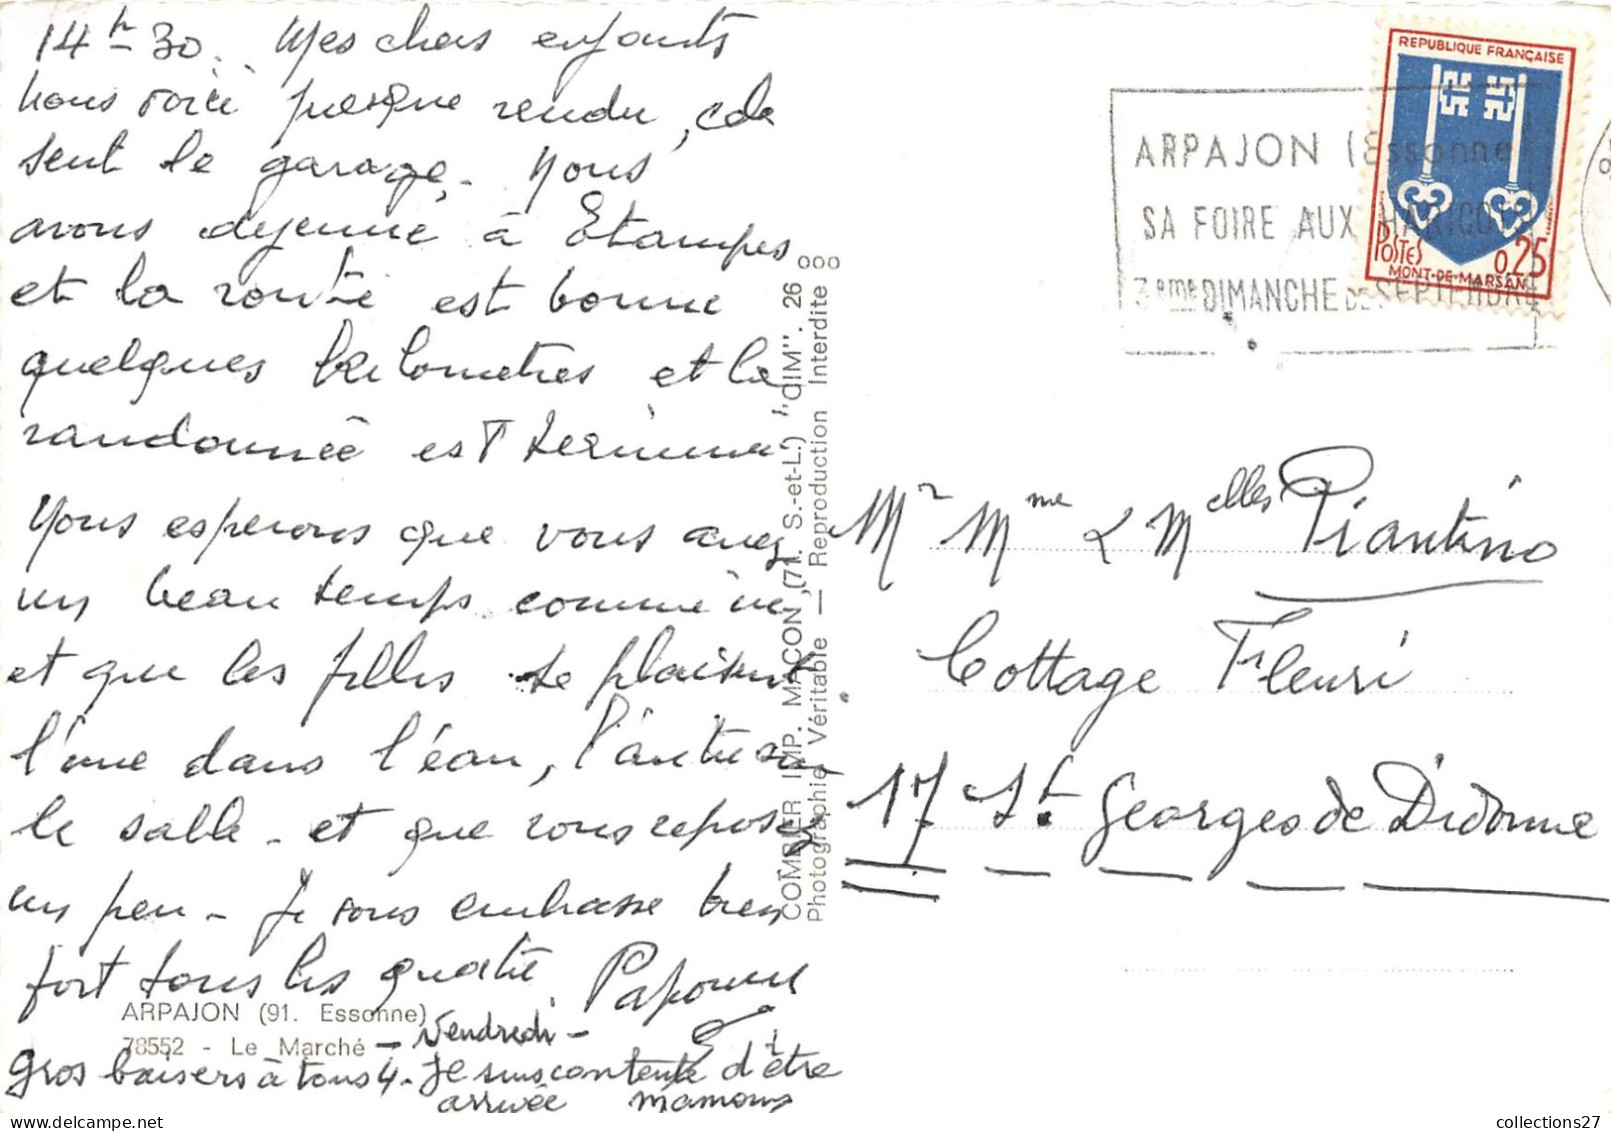 14h 30. Mes chers enfants
nous voici presque rendu, cela
sent le garage. Nous
avons dejeuné à Etampes
et la route est bonne
quelques kilometres et la
randonnée est terminée
Nous esperons que vous avez
un beau temps comme ici
et que les filles se plaisent
l'une dans l'eau, l'autre sur
le sable - et que vous reposez
un peu - Je vous embrasse bien
fort tous les quatre Papoune
ARPAJON (91. Essonne)
78552 - Le Marché - Vendredi -
gros baisers à tous 4 - je suis contente d'être
arrivée mamoune
COMBIER IMP. MACON (71. S.-et-L.) "CIM". 26 000
Photographie Véritable — Reproduction Interdite
REPUBLIQUE FRANÇAISE
POSTES 0,25
MONT-DE-MARSAN
ARPAJON (Essonne)
SA FOIRE AUX HARICOTS
3eme DIMANCHE DE SEPTEMBRE
Mr Mme & Melles Piantino
Cottage Fleuri
17 St. Georges de Didonne
collections27